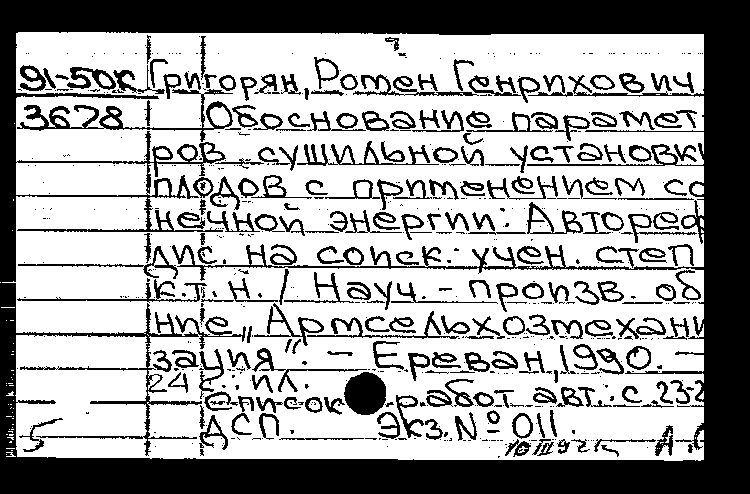 91-50к Григорян, Ротен Генрихович
3678 Обоснование парамет-
ров сушильной установки
плодов с применением со
нечной энергии: Автореф
дис. на соиск. учен. степ
к.т.н. / Науч. - произв. об
ние „Армсельхозмехани
зация“. - Ереван, 1990. -
24 с.: ил.
Список работ авт.: с. 232
ДСП. Экз. № 011.
5